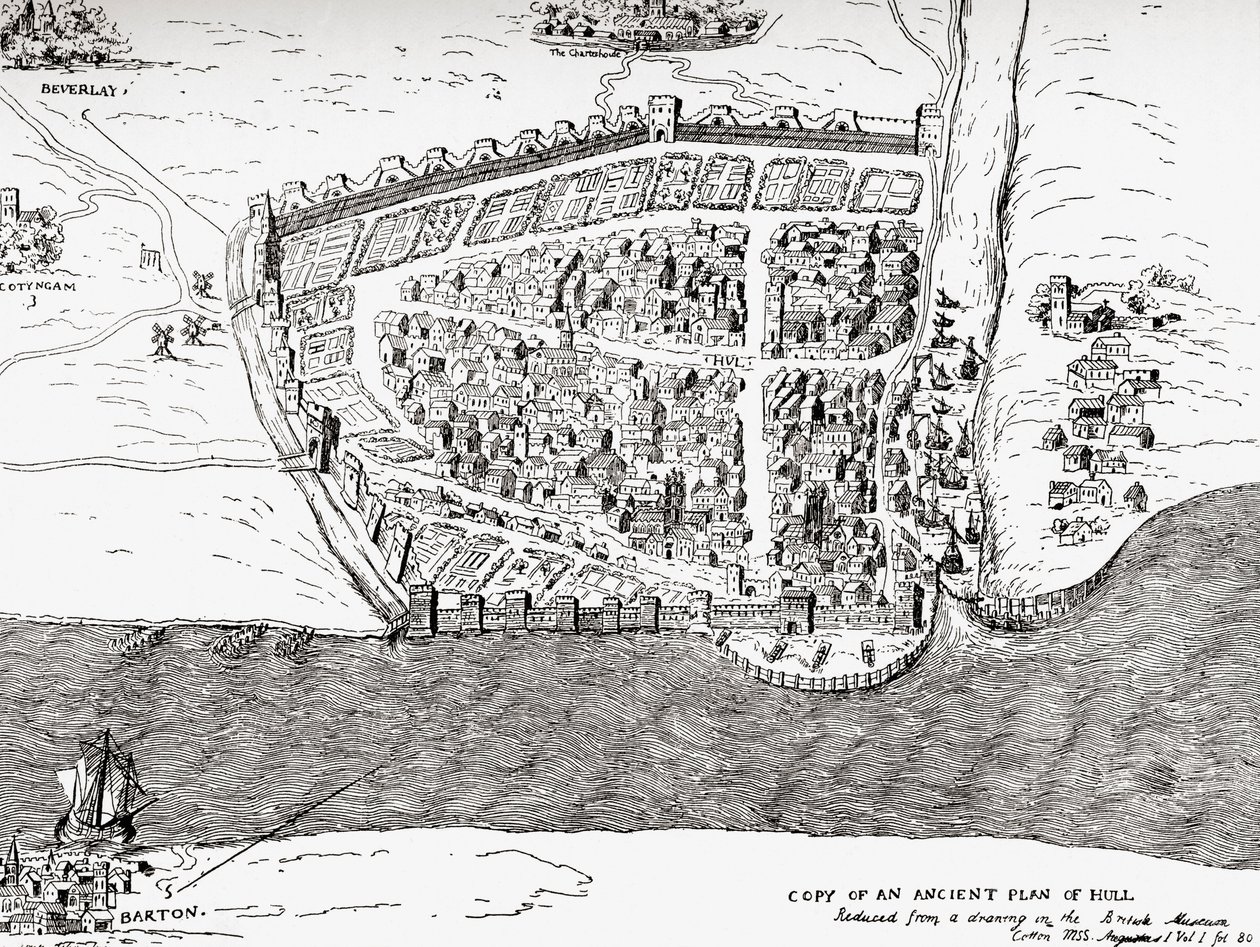 The Charterhouse
BEVERLAY,
COTYNGAM
3
HUL
BARTON.
5
COPY OF AN ANCIENT PLAN OF HULL
Reduced from a drawing in the British Museum
Cotton MSS. Augustus I Vol I fol 80